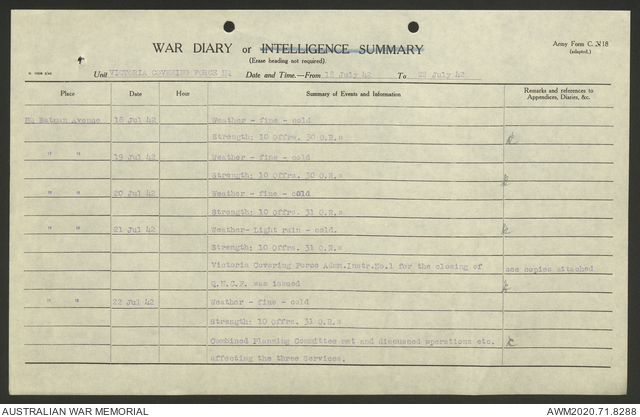 WAR DIARY or INTELLIGENCE SUMMARY
(Erase heading not required).
Army Form C. 
(adapted.)
Unit VICTORIA COVERING FORCE Date and Time.—From 18 July 42 To 22 July 42
Place Date Hour Summary of Events and Information Remarks and references to Appendices, Diaries, &c.
Batman Avenue 18 Jul 42 Weather - fine - cold
Strength: 10 Offrs. 30 O.R.s
" " 19 Jul 42 Weather - fine - cold
Strength: 10 Offrs. 30 O.R.s
" " 20 Jul 42 Weather - fine - cold
Strength: 10 Offrs. 31 O.R.s
" " 21 Jul 42 Weather- Light rain - cold.
Strength: 10 Offrs. 31 O.R.s
Victoria Covering Force Adm.Instr.No.1 for the closing of see copies attached
was issued
" " 22 Jul 42 Weather - fine - cold
Strength: 10 Offrs. 31 O.R.s
Combined Planning Committee met and discussed operations etc.
affecting the three Services.
AUSTRALIAN WAR MEMORIAL AWM2020.71.8288